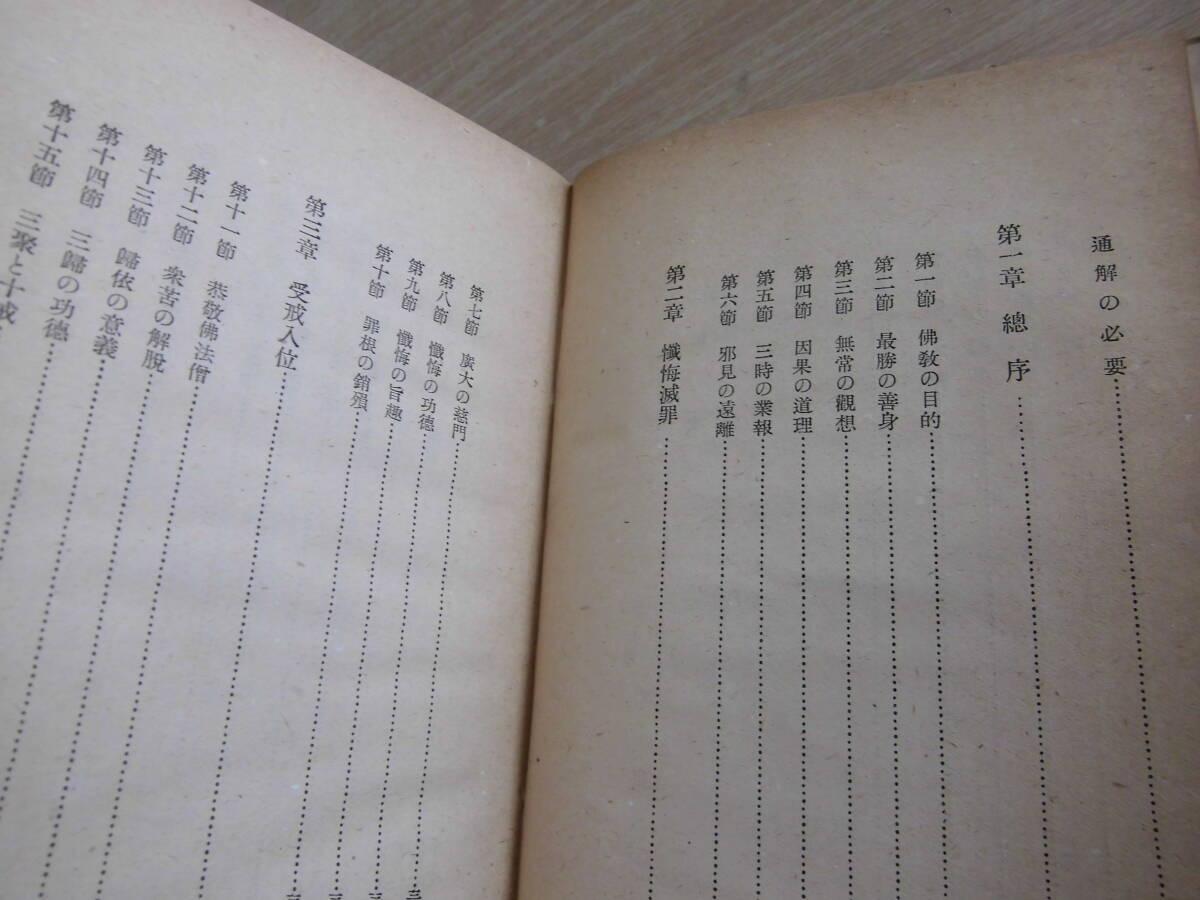 通解の必要
第一章 總序
第一節 佛教の目的
第二節 最勝の善身
第三節 無常の觀想
第四節 因果の道理
第五節 三時の業報
第六節 邪見の遠離
第二章 懺悔滅罪
第七節 廣大の慈門
第八節 懺悔の功德
第九節 懺悔の旨趣
第十節 罪根の銷殞
第三章 受戒入位
第十一節 恭敬佛法僧
第十二節 衆苦の解脫
第十三節 歸依の意義
第十四節 三歸の功德
第十五節 三聚と十戒